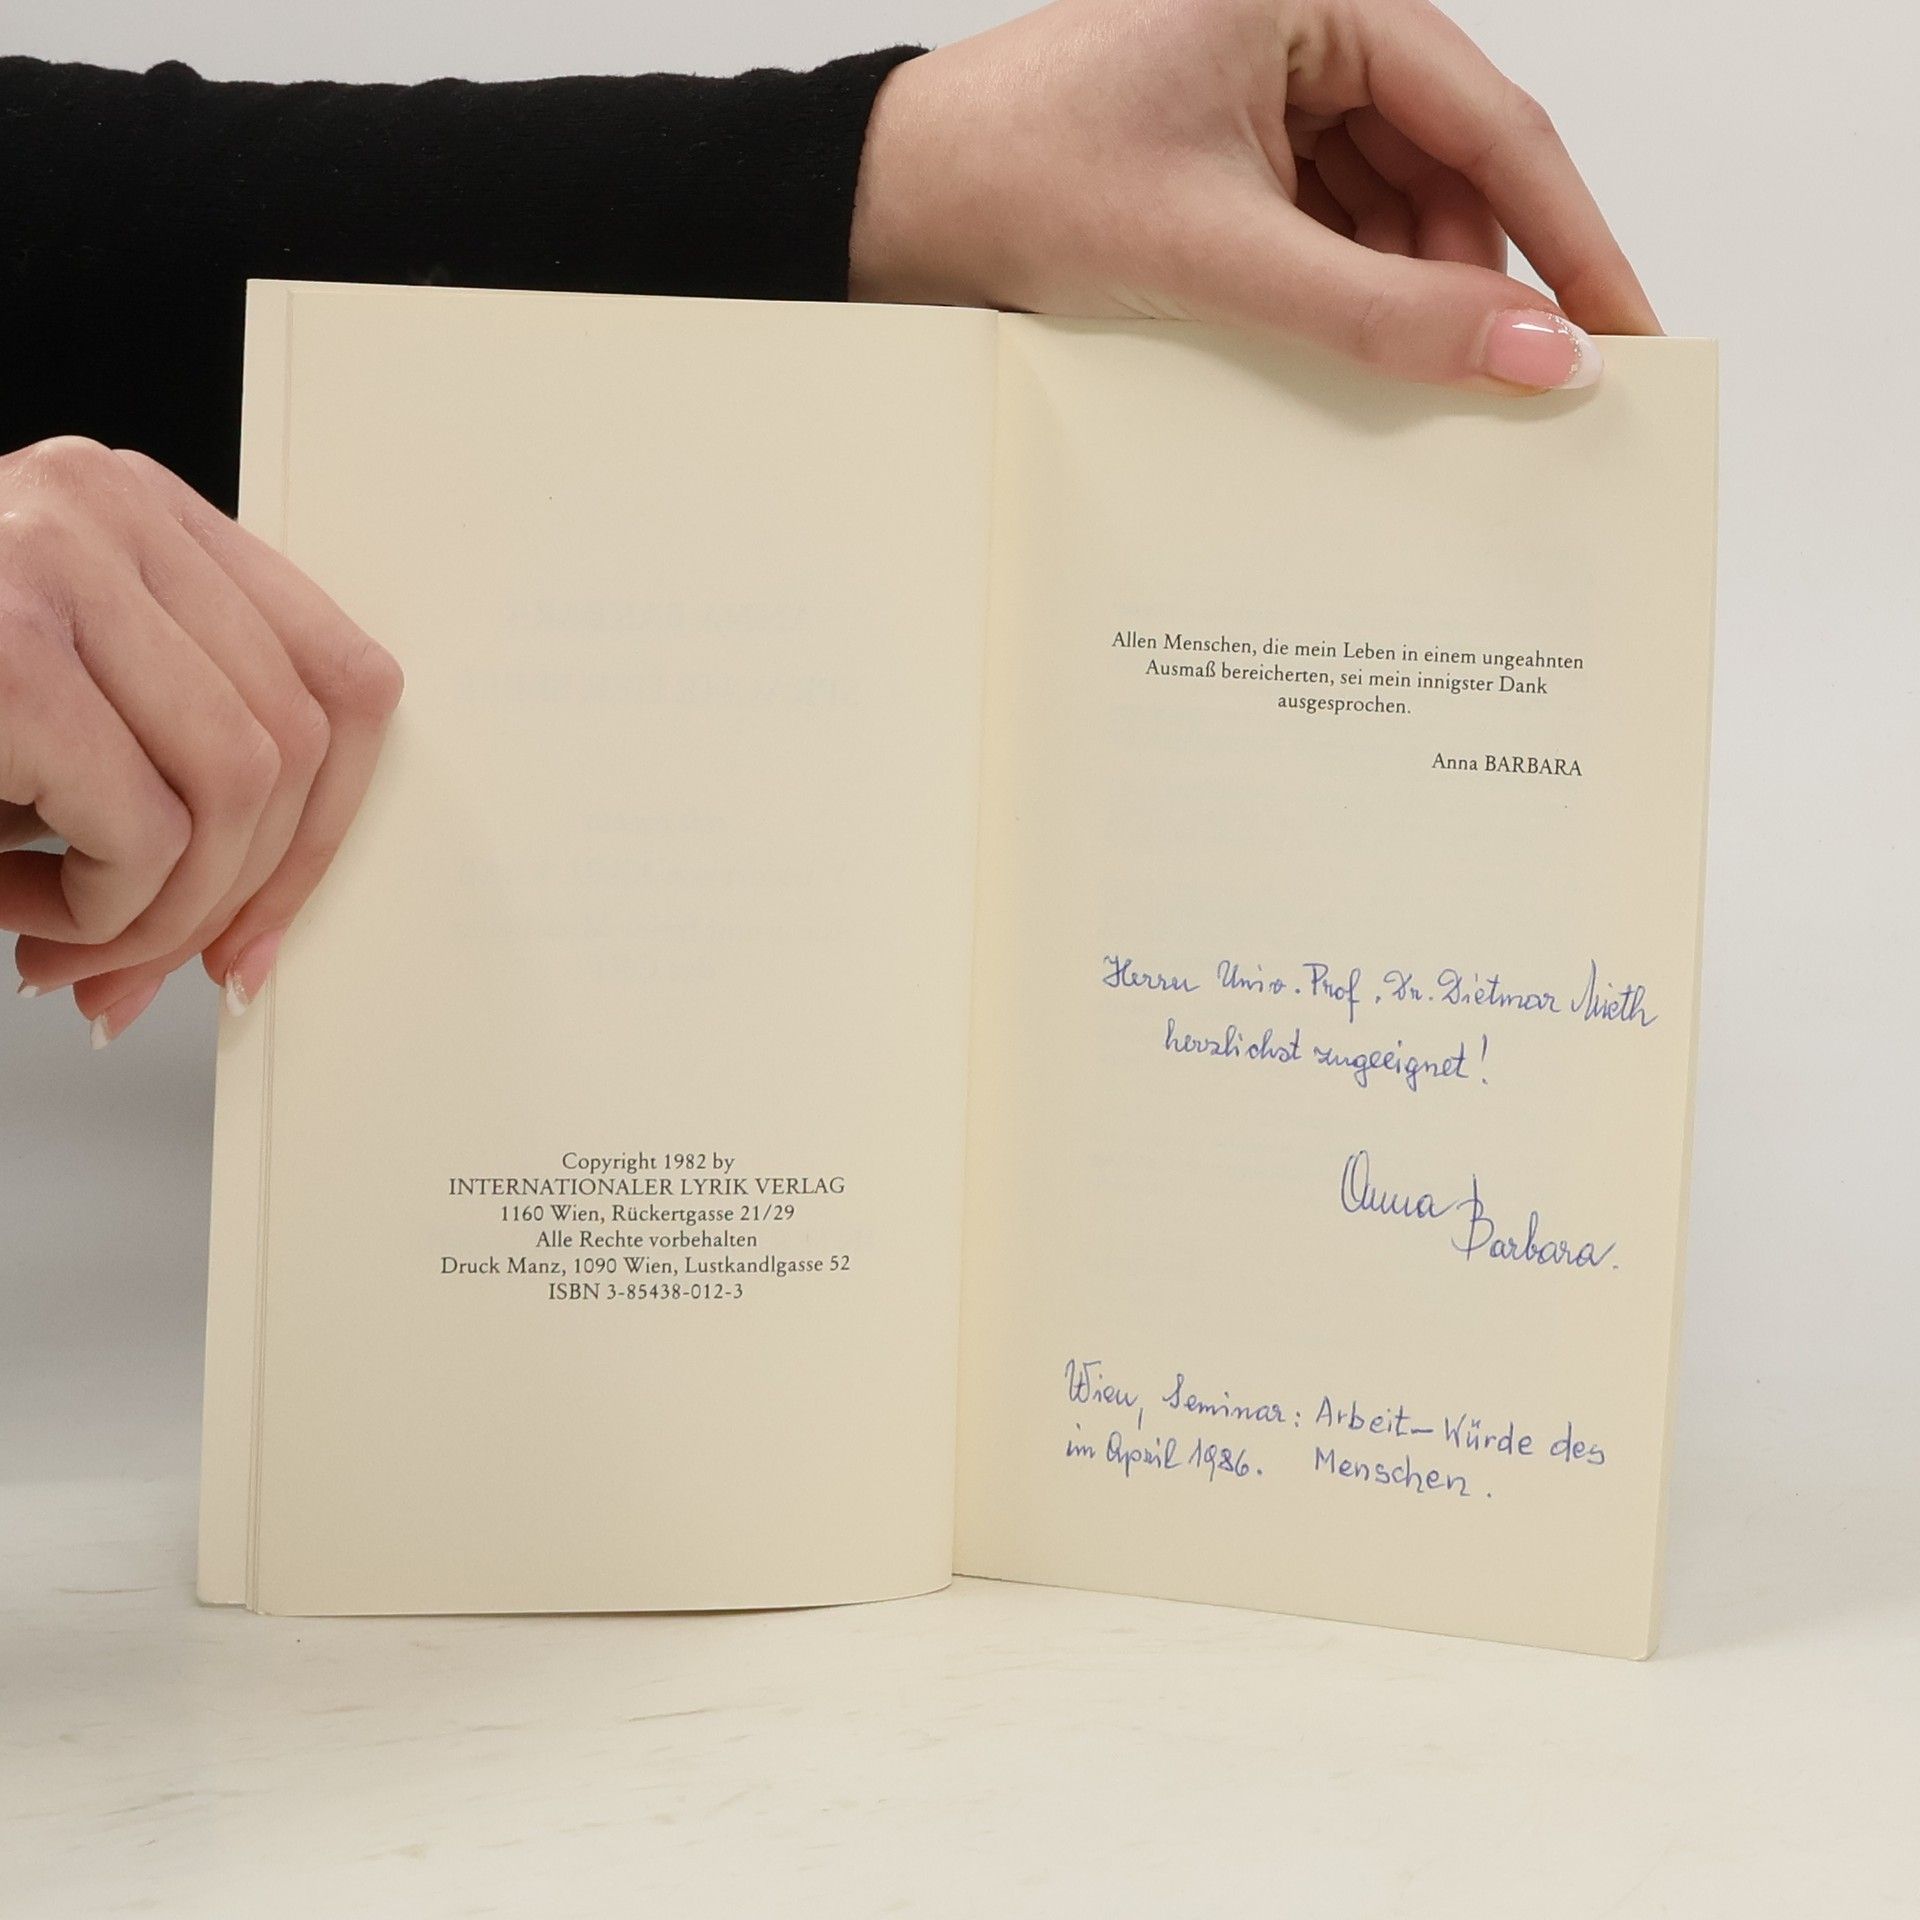 Copyright 1982 by
INTERNATIONALER LYRIK VERLAG
1160 Wien, Rückertgasse 21/29
Alle Rechte vorbehalten
Druck Manz, 1090 Wien, Lustkandlgasse 52
ISBN 3-85438-012-3
Allen Menschen, die mein Leben in einem ungeahnten
Ausmaß bereicherten, sei mein innigster Dank
ausgesprochen.
Anna BARBARA
Herrn Univ. Prof. Dr. Dietmar Mieth
herzlichst zugeeignet!
Anna
Barbara.
Wien, Seminar: Arbeit – Würde des
im April 1986. Menschen.